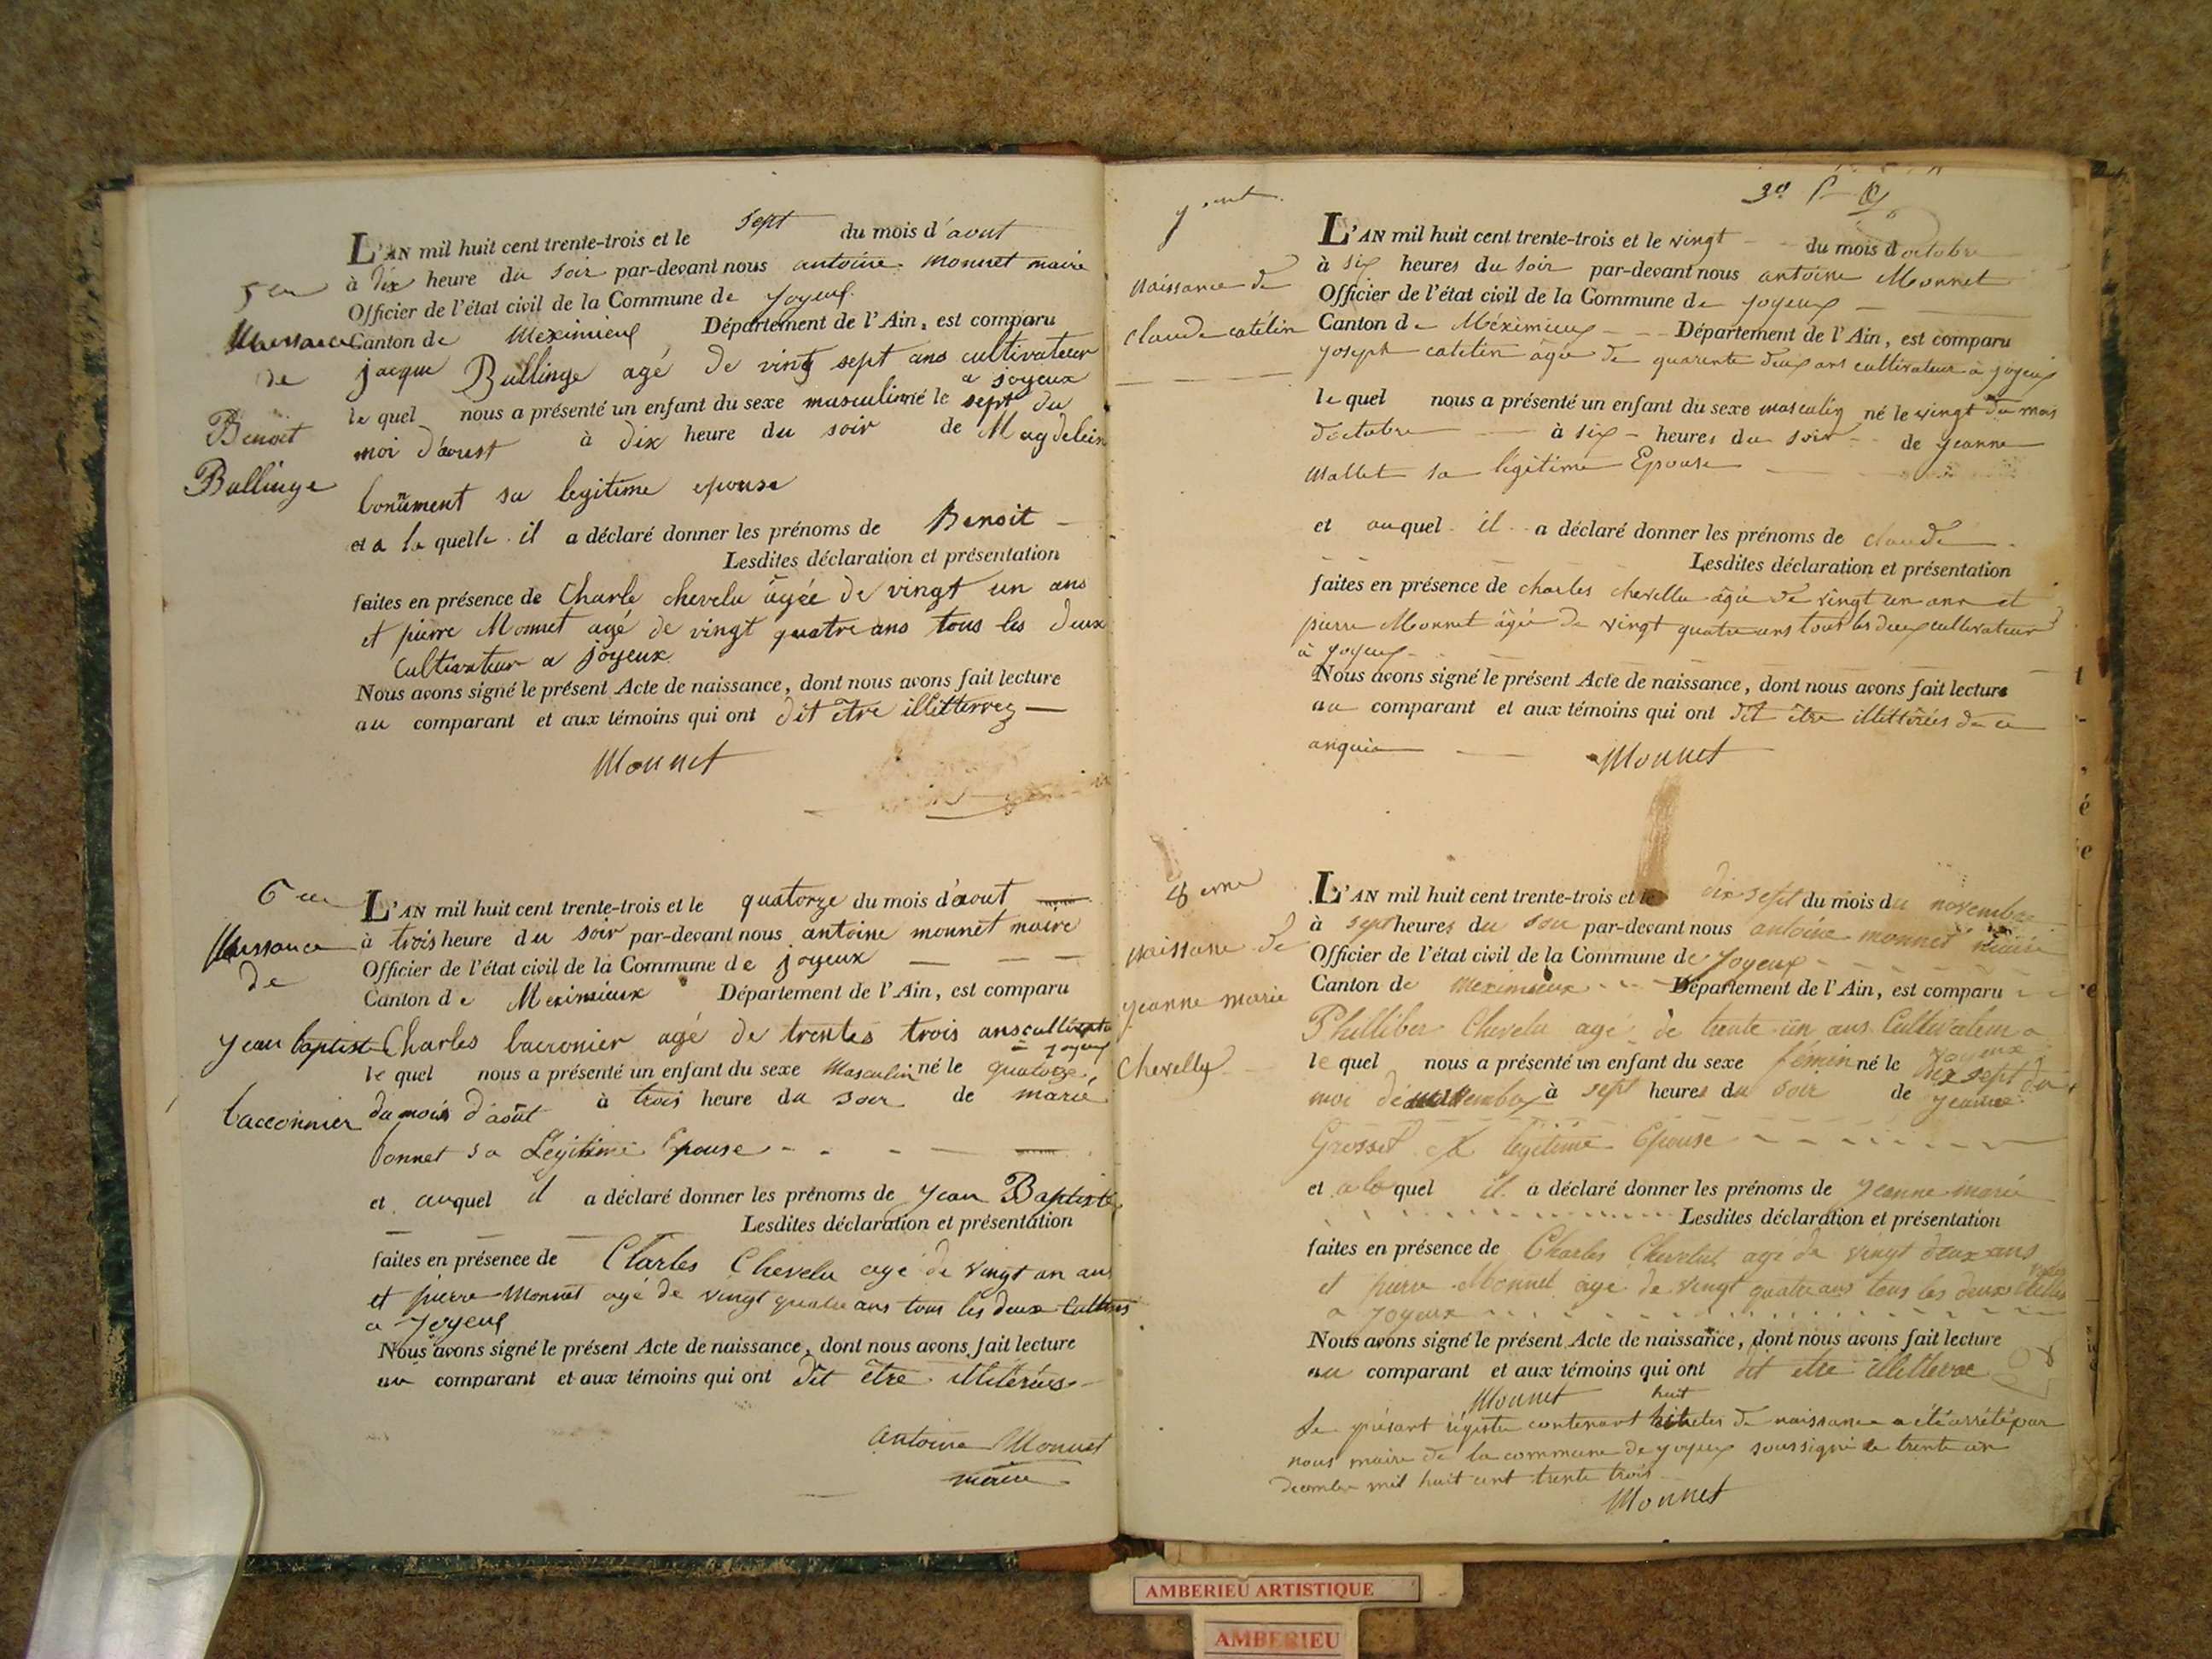 5em
Naissance
de
Benoit
Bullinge
L'AN mil huit cent trente-trois et le sept du mois d'aout
à dix heure du soir par-devant nous antoine monnet maire
Officier de l'état civil de la Commune de Joyeux
Canton de Meximieux Département de l'Ain, est comparu
jacque Bullinge agé de vingt sept ans cultivateur
a joyeux
le quel nous a présenté un enfant du sexe masculin né le sept du
moi d'aoust à dix heure du soir de Magdelein
bonnment sa legitime epouse
et a la quelle il a déclaré donner les prénoms de Benoit
Lesdites déclaration et présentation
faites en présence de Charle chevelu agée de vingt un ans
et pierre Monnet agé de vingt quatre ans tous les deux
Cultivateur a joyeux
Nous avons signé le présent Acte de naissance, dont nous avons fait lecture
au comparant et aux témoins qui ont dit être illitterrez
Monnet
6em
Naissance
de
jean baptist
baccconnier
L'AN mil huit cent trente-trois et le quatorze du mois d'aout
à trois heure du soir par-devant nous antoine monnet maire
Officier de l'état civil de la Commune de joyeux
Canton de Meximieux Département de l'Ain, est comparu
Charles bacconier agé de trentes trois ans cultivateur
a joyeux
le quel nous a présenté un enfant du sexe Masculin né le quatorze
du mois d'août à trois heure du soir de marie
bonnet sa Légitime Epouse
et auquel il a déclaré donner les prénoms de jean Baptiste
Lesdites déclaration et présentation
faites en présence de Charles Chevelu agé de vingt un ans
et pierre Monnet agé de vingt quatre ans tous les deux
a Joyeux
Nous avons signé le présent Acte de naissance, dont nous avons fait lecture
au comparant et aux témoins qui ont dit être illiterées
Antoine Monnet
maire
naissance de
claude catélin
L'AN mil huit cent trente-trois et le vingt du mois d'octobre
à six heures du soir par-devant nous antoine Monnet
Officier de l'état civil de la Commune de joyeux
Canton de Méximieux Département de l'Ain, est comparu
joseph catelin âgée de quarente deux ans cultivateur à joyeux
le quel nous a présenté un enfant du sexe masculin né le vingt du mois
d'octobre à six heures du soir de jeanne
Mallet sa légitime Epouse
et auquel il a déclaré donner les prénoms de claude
Lesdites déclaration et présentation
faites en présence de charles chevellu âgée de vingt un ans et
pierre Monnet âgée de vingt quatre ans tous les deux cultivateur
à joyeux
Nous avons signé le présent Acte de naissance, dont nous avons fait lecture
au comparant et aux témoins qui ont dit être illittérées de ce
anquis
Monnet
8eme
naissane de
jeanne marie
Chevelly
L'AN mil huit cent trente-trois et le dix sept du mois du novembre
à sept heures du soir par-devant nous antoine monnet maire
Officier de l'état civil de la Commune de Joyeux
Canton de meximieux Département de l'Ain, est comparu
Philliber Chevelu agé de trente un ans Cultivateur a
joyeux
le quel nous a présenté un enfant du sexe fémin né le dix sept du
moi de novembre à sept heures du soir de jeanne
Grosset sa légitime Epouse
et a la quel il a déclaré donner les prénoms de jeanne marie
Lesdites déclaration et présentation
faites en présence de Charles Chevelut agé de vingt deux ans
et pierre Monnet agé de vingt quatre ans tous les deux
a joyeux
Nous avons signé le présent Acte de naissance, dont nous avons fait lecture
au comparant et aux témoins qui ont dit etre illitterre
Monnet
huit
Le présant registre contenant actes de naissance a été arrété par
nous maire de la commune de joyeux soussigné le trente un
decembre mil huit cent trente trois
Monnet
AMBERIEU ARTISTIQUE
AMBERIEU